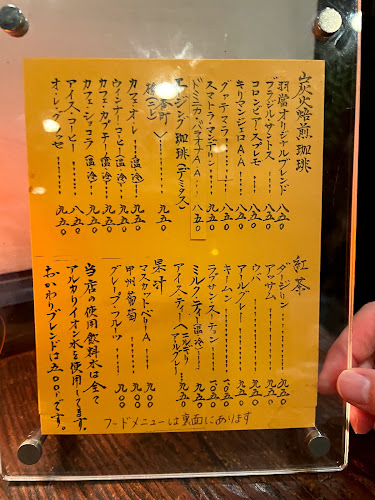 炭火焙煎珈琲
羽當オリジナルブレンド 八五〇
ブラジル・サントス 八五〇
コロンビア・スプレモ 八五〇
キリマンジェロ・AA 八五〇
グァテマラ 八五〇
スマトラ・マンデリン 八五〇
ドミニカ・バラオナAA 八五〇
エイジング珈琲(デミタス)
カフェ・オ・レ(温・冷) 九五〇
ウィンナ・コーヒー(温・冷) 九五〇
カフェ・カプチーノ(温・冷) 九五〇
カフェ・ショコラ(温・冷) 九五〇
アイス・コーヒー 八五〇
オ・レ・グラッセ 九五〇
紅茶
ダージリン 九五〇
アッサム 九五〇
ウバ 九五〇
アールグレー 九五〇
キームン 一〇五〇
ラプサンスーチョン 一〇五〇
ミルクティー(温・冷) 九五〇
アイスティー(アールグレー)
果汁
マスカットベリーA 九〇〇
甲州葡萄 九〇〇
グレープ・フルーツ 九〇〇
当店の使用飲料水は全て
アルカリイオン水を使用してます。
おかわりブレンドは五〇〇円です。
フードメニューは裏面にあります